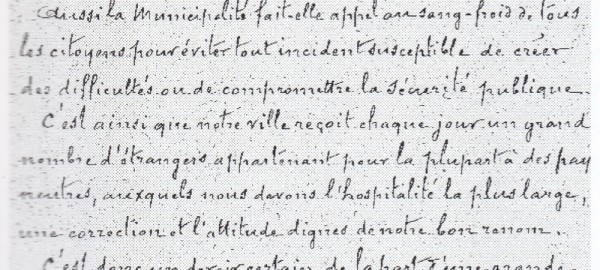 Aussi la Municipalité fait-elle appel au sang-froid de tous
les citoyens pour éviter tout incident susceptible de créer
des difficultés ou de compromettre la sécurité publique.
C'est ainsi que notre ville reçoit chaque jour un grand
nombre d'étrangers appartenant pour la plupart à des pay
neutres, auxquels nous devons l'hospitalité la plus large,
une correction et l'attitude dignes de notre bon renom.
C'est donc un devoir certain de la part d'une grande